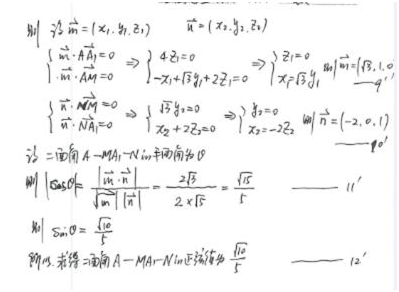 则 设 m⃗ = (x₁, y₁, z₁)  n⃗ = (x₂, y₂, z₂)
{ m⃗·AA₁⃗ = 0 ⇒ { 4z₁ = 0 ⇒ { z₁ = 0
{ m⃗·AM⃗ = 0  { -x₁+√3y₁+2z₁ = 0  { x₁ = √3y₁ 则 m⃗ = (√3, 1, 0 —— 9'
{ n⃗·NM⃗ = 0 ⇒ { √3y₂ = 0 ⇒ { y₂ = 0
{ n⃗·NA₁⃗ = 0  { x₂+2z₂ = 0  { x₂ = -2z₂ 则 n⃗ = (-2, 0, 1) —— 10'
设 二面角 A-MA₁-N 的平面角为 θ
则 |cosθ| = |m⃗·n⃗| / |m⃗||n⃗| = 2√3 / 2×√5 = √15 / 5 —— 11'
则 sinθ = √10 / 5
所以, 求得 二面角 A-MA₁-N 的正弦值为 √10 / 5 —— 12'